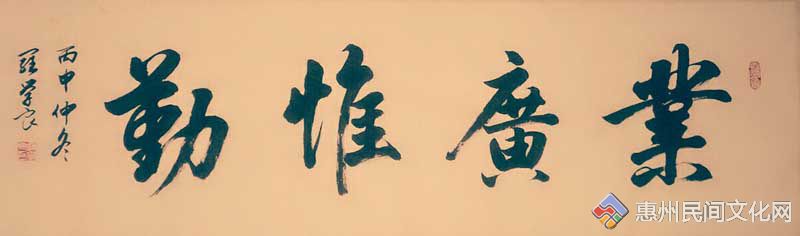 業廣惟勤
丙申仲冬
羅学良
惠州民间文化网